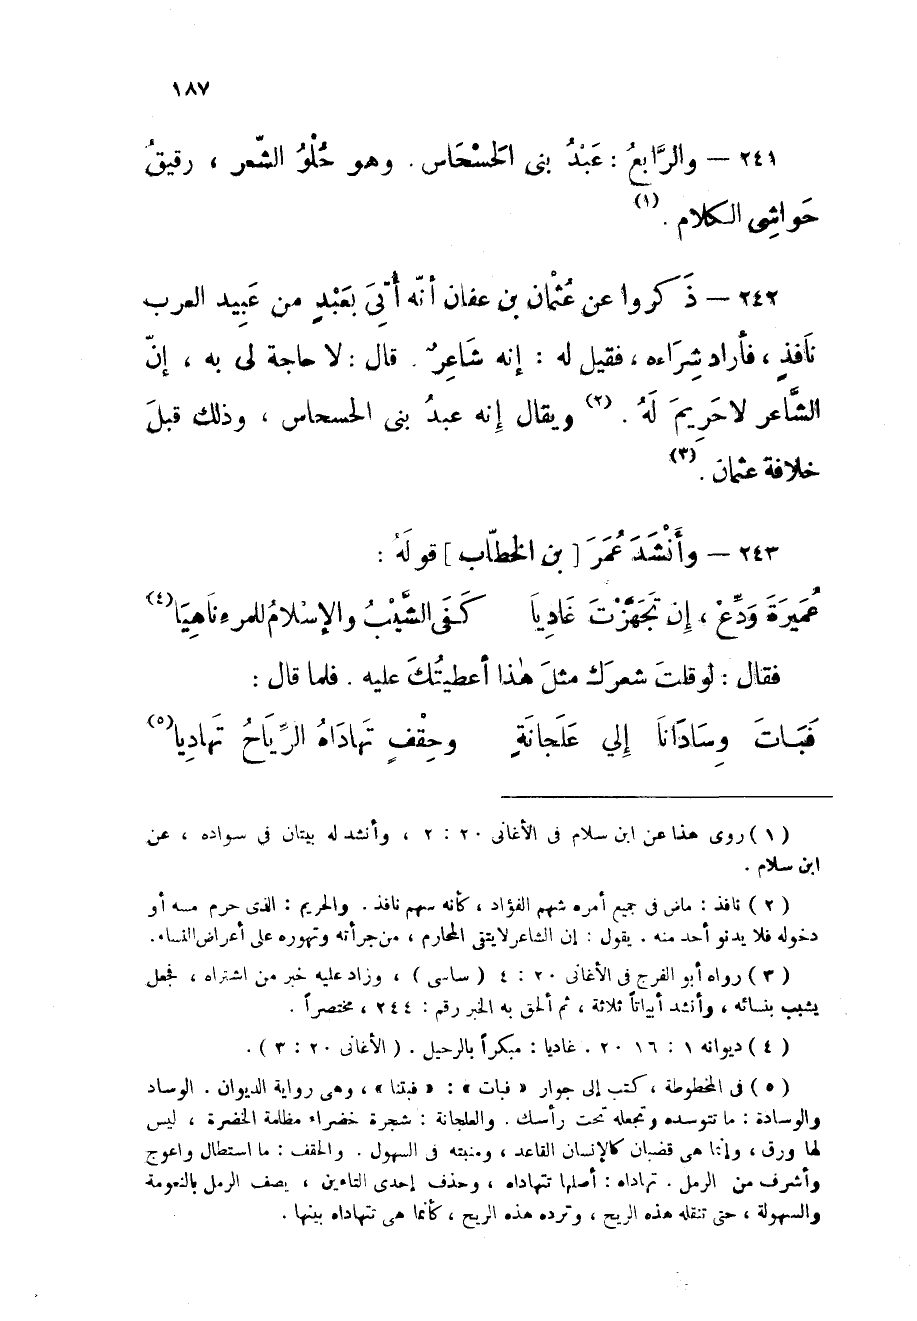 ١٨٧
٢٤١ — والرَّابعُ : عَبْدُ بنى الحَسْحَاس . وهو حُلْوُ الشّعر ، رقيقُ
حَواشِى الكلام .(١)
٢٤٢ — ذَكروا عن عُثْمان بن عفان أنّه أُتِىَ بعَبْدٍ من عَبِيد العرب
نَافِذٍ ، فأراد شِرَاءه ، فقيل له : إنه شَاعِرٌ . قال : لا حاجة لى به ، إنّ
الشَّاعر لا حَرِيمَ لَهُ . (٢) ويقال إنه عبدُ بنى الحسحاس ، وذلك قبلَ
خلافة عثمان .(٣)
٢٤٣ — وأَنْشَدَ عُمَرَ [ بن الخطّاب ] قولَهُ :
عُمَيرَةَ وَدِّعْ ، إن تَجَهَّزْتَ غَادِيَا كَفَى الشَّيْبُ والإسْلامُ للمرءِ نَاهِيَا(٤)
فقال : لو قلتَ شعرك مثلَ هٰذا أعطيتُكَ عليه . فلما قال :
فَبَاتَ وِسَادَانَا إلي عَلَجانَةٍ وحِقْفٍ تَهَادَاهُ الرِّيَاحُ تَهَادِيا(٥)
( ١ ) روى هذا عن ابن سلام فى الأغانى ٢٠ : ٢ ، وأنشد له بيتان فى سواده ، عن
ابن سلام .
( ٢ ) نافذ : ماض فى جميع أمره شهم الفؤاد ، كأنه سهم نافذ . والحريم : الذى حرم مسه أو
دخوله فلا يدنو أحد منه . يقول : إن الشاعر لا يتقى المحارم ، من جرأته وتهوره على أعراض النساء .
( ٣ ) رواه أبو الفرج فى الأغانى ٢٠ : ٤ ( ساسى ) ، وزاد عليه خبر من اشتراه ، فجعل
يشبب بنسائه ، وأنشد أبياتاً ثلاثة ، ثم ألحق به الخبر رقم : ٢٤٤ ، مختصراً .
( ٤ ) ديوانه ١ : ١٦ ٢٠ . غاديا : مبكراً بالرحيل . ( الأغانى ٢٠ : ٣ ) .
( ٥ ) فى المخطوطة ، كتب إلى جوار « فبات » : « فبتنا » ، وهى رواية الديوان . الوساد
والوسادة : ما تتوسده وتجعله تحت رأسك . والعلجانة : شجرة خضراء مظلمة الخضرة ، ليس
لها ورق ، وإنما هى قضبان كالإنسان القاعد ، ومنبته فى السهول . والحقف : ما استطال واعوج
وأشرف من الرمل . تهاداه : أصلها تتهاداه ، وحذف إحدى التاءين ، يصف الرمل بالنعومة
والسهولة ، حتى تنقله هذه الريح ، وترده هذه الريح ، كأنما هى تتهاداه بينها .